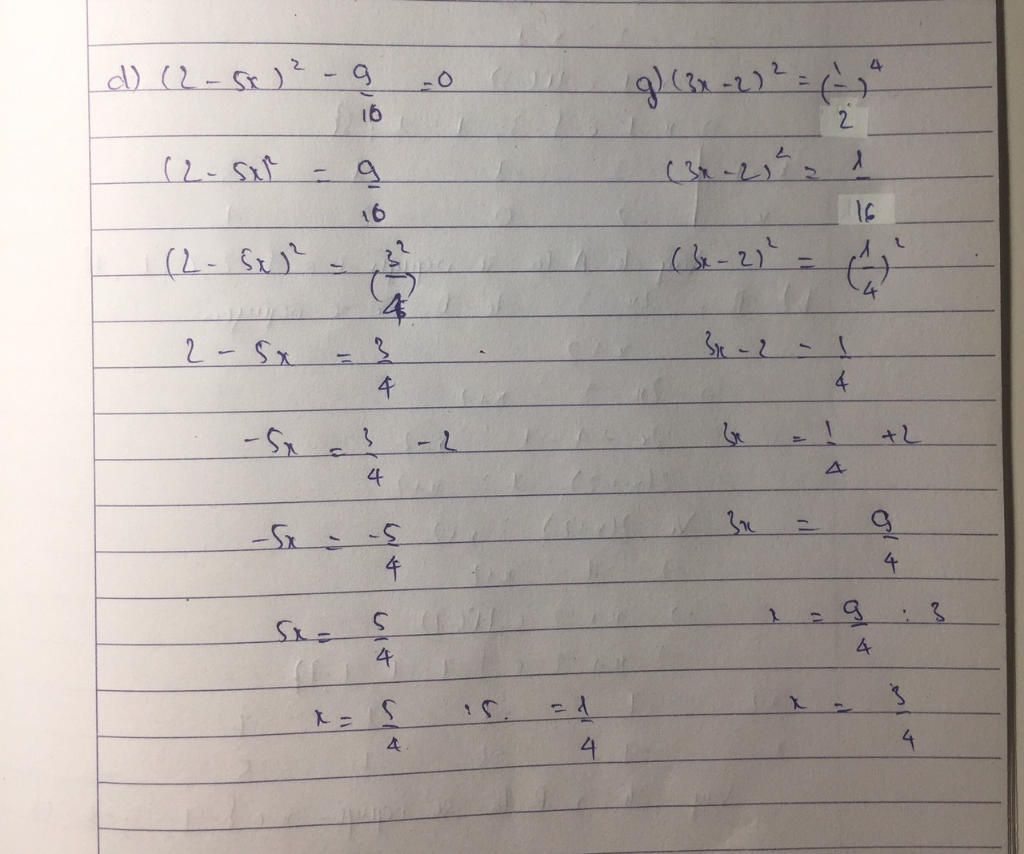 d) (2 - 5x)² - 9/16 = 0
(2 - 5x)² = 9/16
(2 - 5x)² = (3/4)²
2 - 5x = 3/4
-5x = 3/4 - 2
-5x = -5/4
5x = 5/4
x = 5/4 : 5. = 1/4
g) (3x - 2)² = (1/2)⁴
(3x - 2)² = 1/16
(3x - 2)² = (1/4)²
3x - 2 = 1/4
3x = 1/4 + 2
3x = 9/4
x = 9/4 : 3
x = 3/4